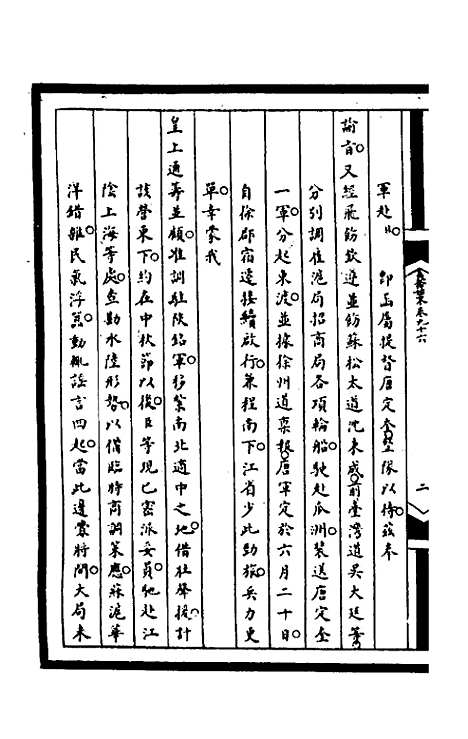 夷務始末卷九十六
二
軍起日。即函屬提督唐定奎整隊以待。茲奉
諭旨。又經飛飭欽遵。並飭蘇松太道沈秉成。前臺灣道吳大廷等。
分別調雇滬局招商局各項輪船。駛赴瓜洲。裝送唐定奎
一軍分起東渡。並據徐州道稟報。唐軍定於六月二十日。
自徐郡宿遷接續啟行。兼程南下。江省少此勁旅。兵力更
單。幸蒙我
皇上通籌並顧。准調駐陝銘軍。移紮南北適中之地。借壯聲援。計
該營東下。約在中秋節以後。臣等現已密派妥員。馳赴江
陰上海等處。查勘水陸形勢。以備臨時商調策應。蘇滬華
洋錯雜。民氣浮囂。動輒謠言四起。當此邊釁將開。大局未